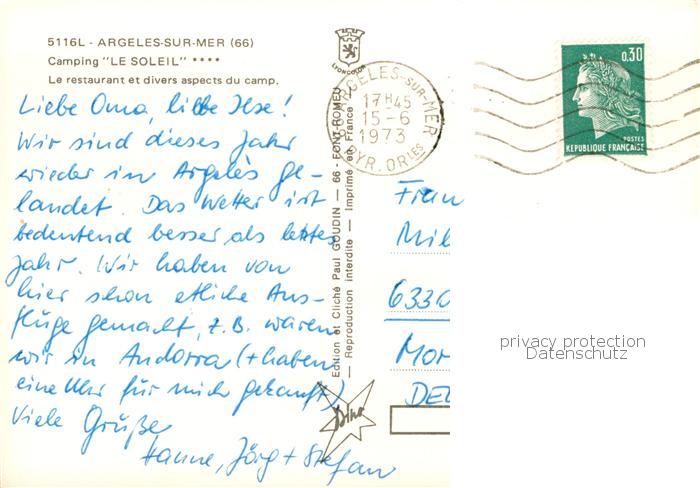 5116L - ARGELES-SUR-MER (66)
Camping "LE SOLEIL" ****
Le restaurant et divers aspects du camp.
LYONCOLOR
Liebe Oma, liebe Ilse!
Wir sind dieses Jahr
wieder in Argelès ge-
landet. Das Wetter ist
bedeutend besser als letztes
Jahr. Wir haben von
hier schon etliche Aus-
flüge gemacht, z.B. waren
wir in Andorra (+ haben
eine Uhr für mich gekauft)
Viele Grüße
Hanne, Jörg + Stefan
Edition et Cliché Paul GOUDIN - 66 - FONT-ROMEU
— Reproduction interdite — Imprimé en France —
ARGELES-SUR-MER
17H45
15-6
1973
PYR. ORLES
0,30
POSTES
REPUBLIQUE FRANÇAISE
Frau
6330
privacy protection
Datenschutz